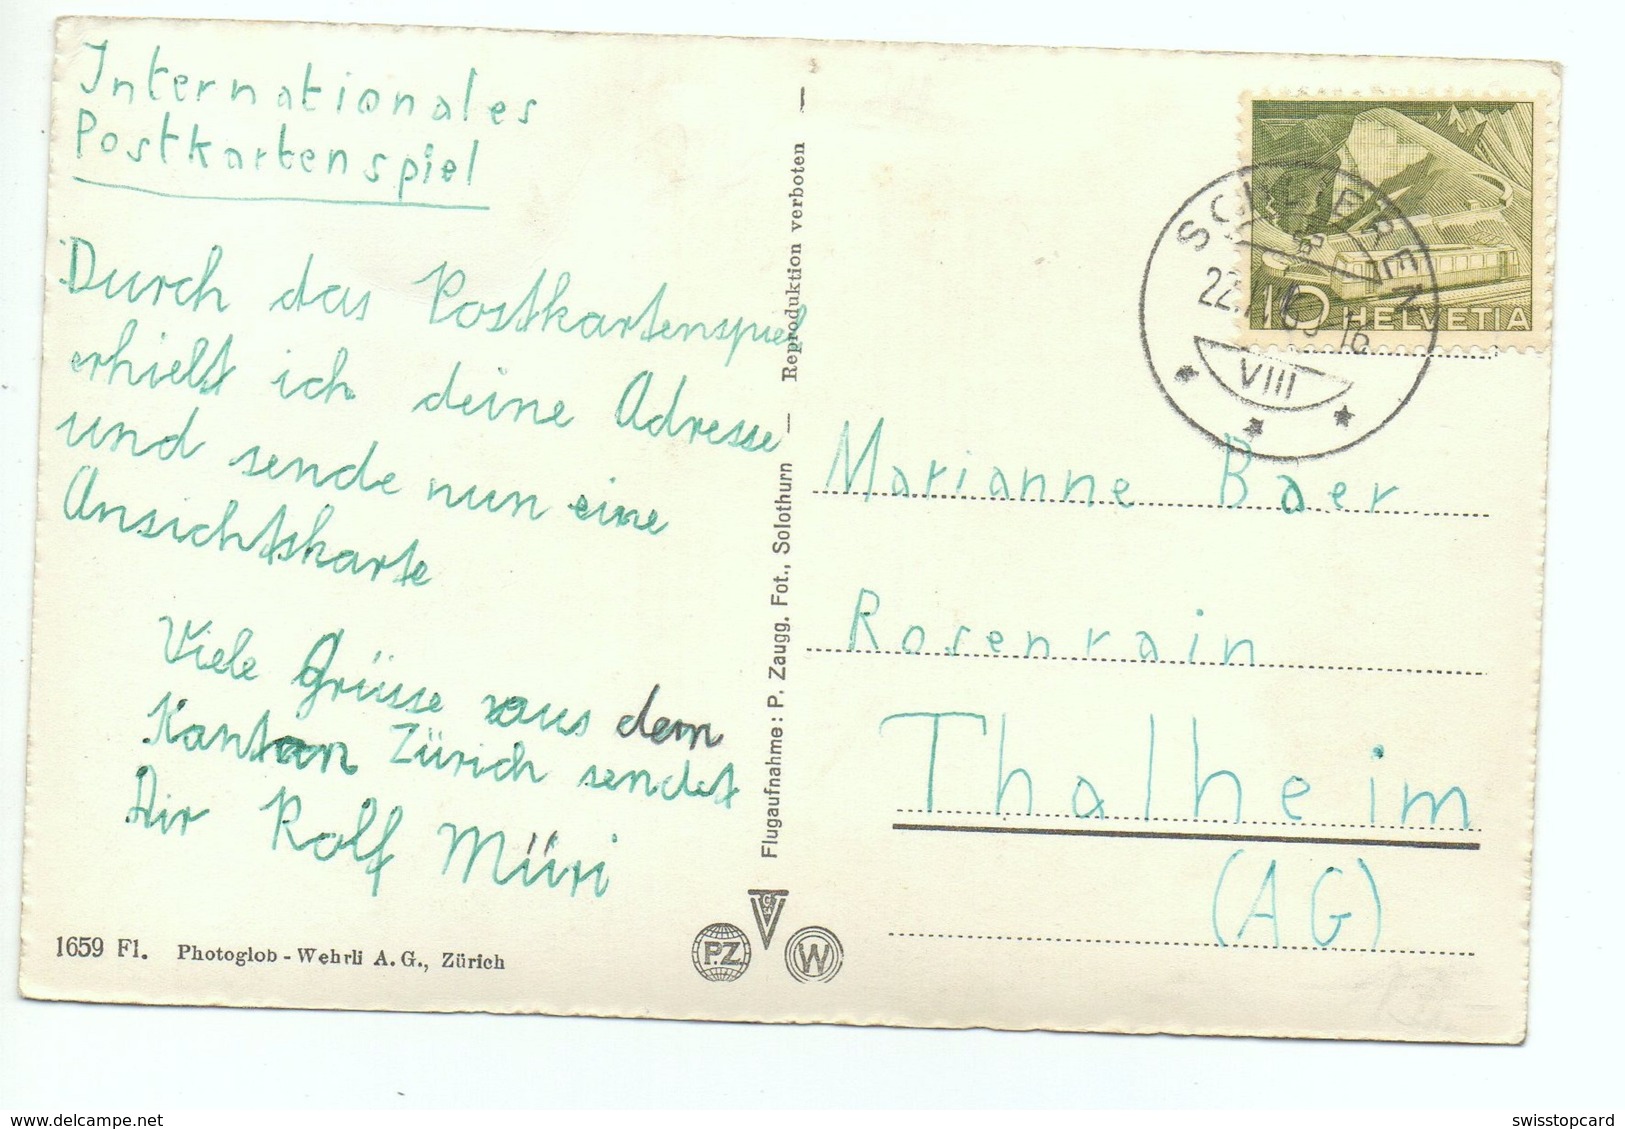 Internationales
Postkartenspiel
Durch das Postkartenspiel
erhielt ich deine Adresse
und sende nun eine
Ansichtskarte
Viele Grüsse aus dem
Kanton Zürich sendet
Dir Rolf Müri
1659 Fl. Photoglob - Wehrli A. G., Zürich
Flugaufnahme: P. Zaugg. Fot., Solothurn — Reproduktion verboten —
P.Z.
W
SCHLIEREN
VIII
10 HELVETIA
Marianne Baer
Rosenrain
Thalheim
(AG)
delcampe.net
swisstopcard